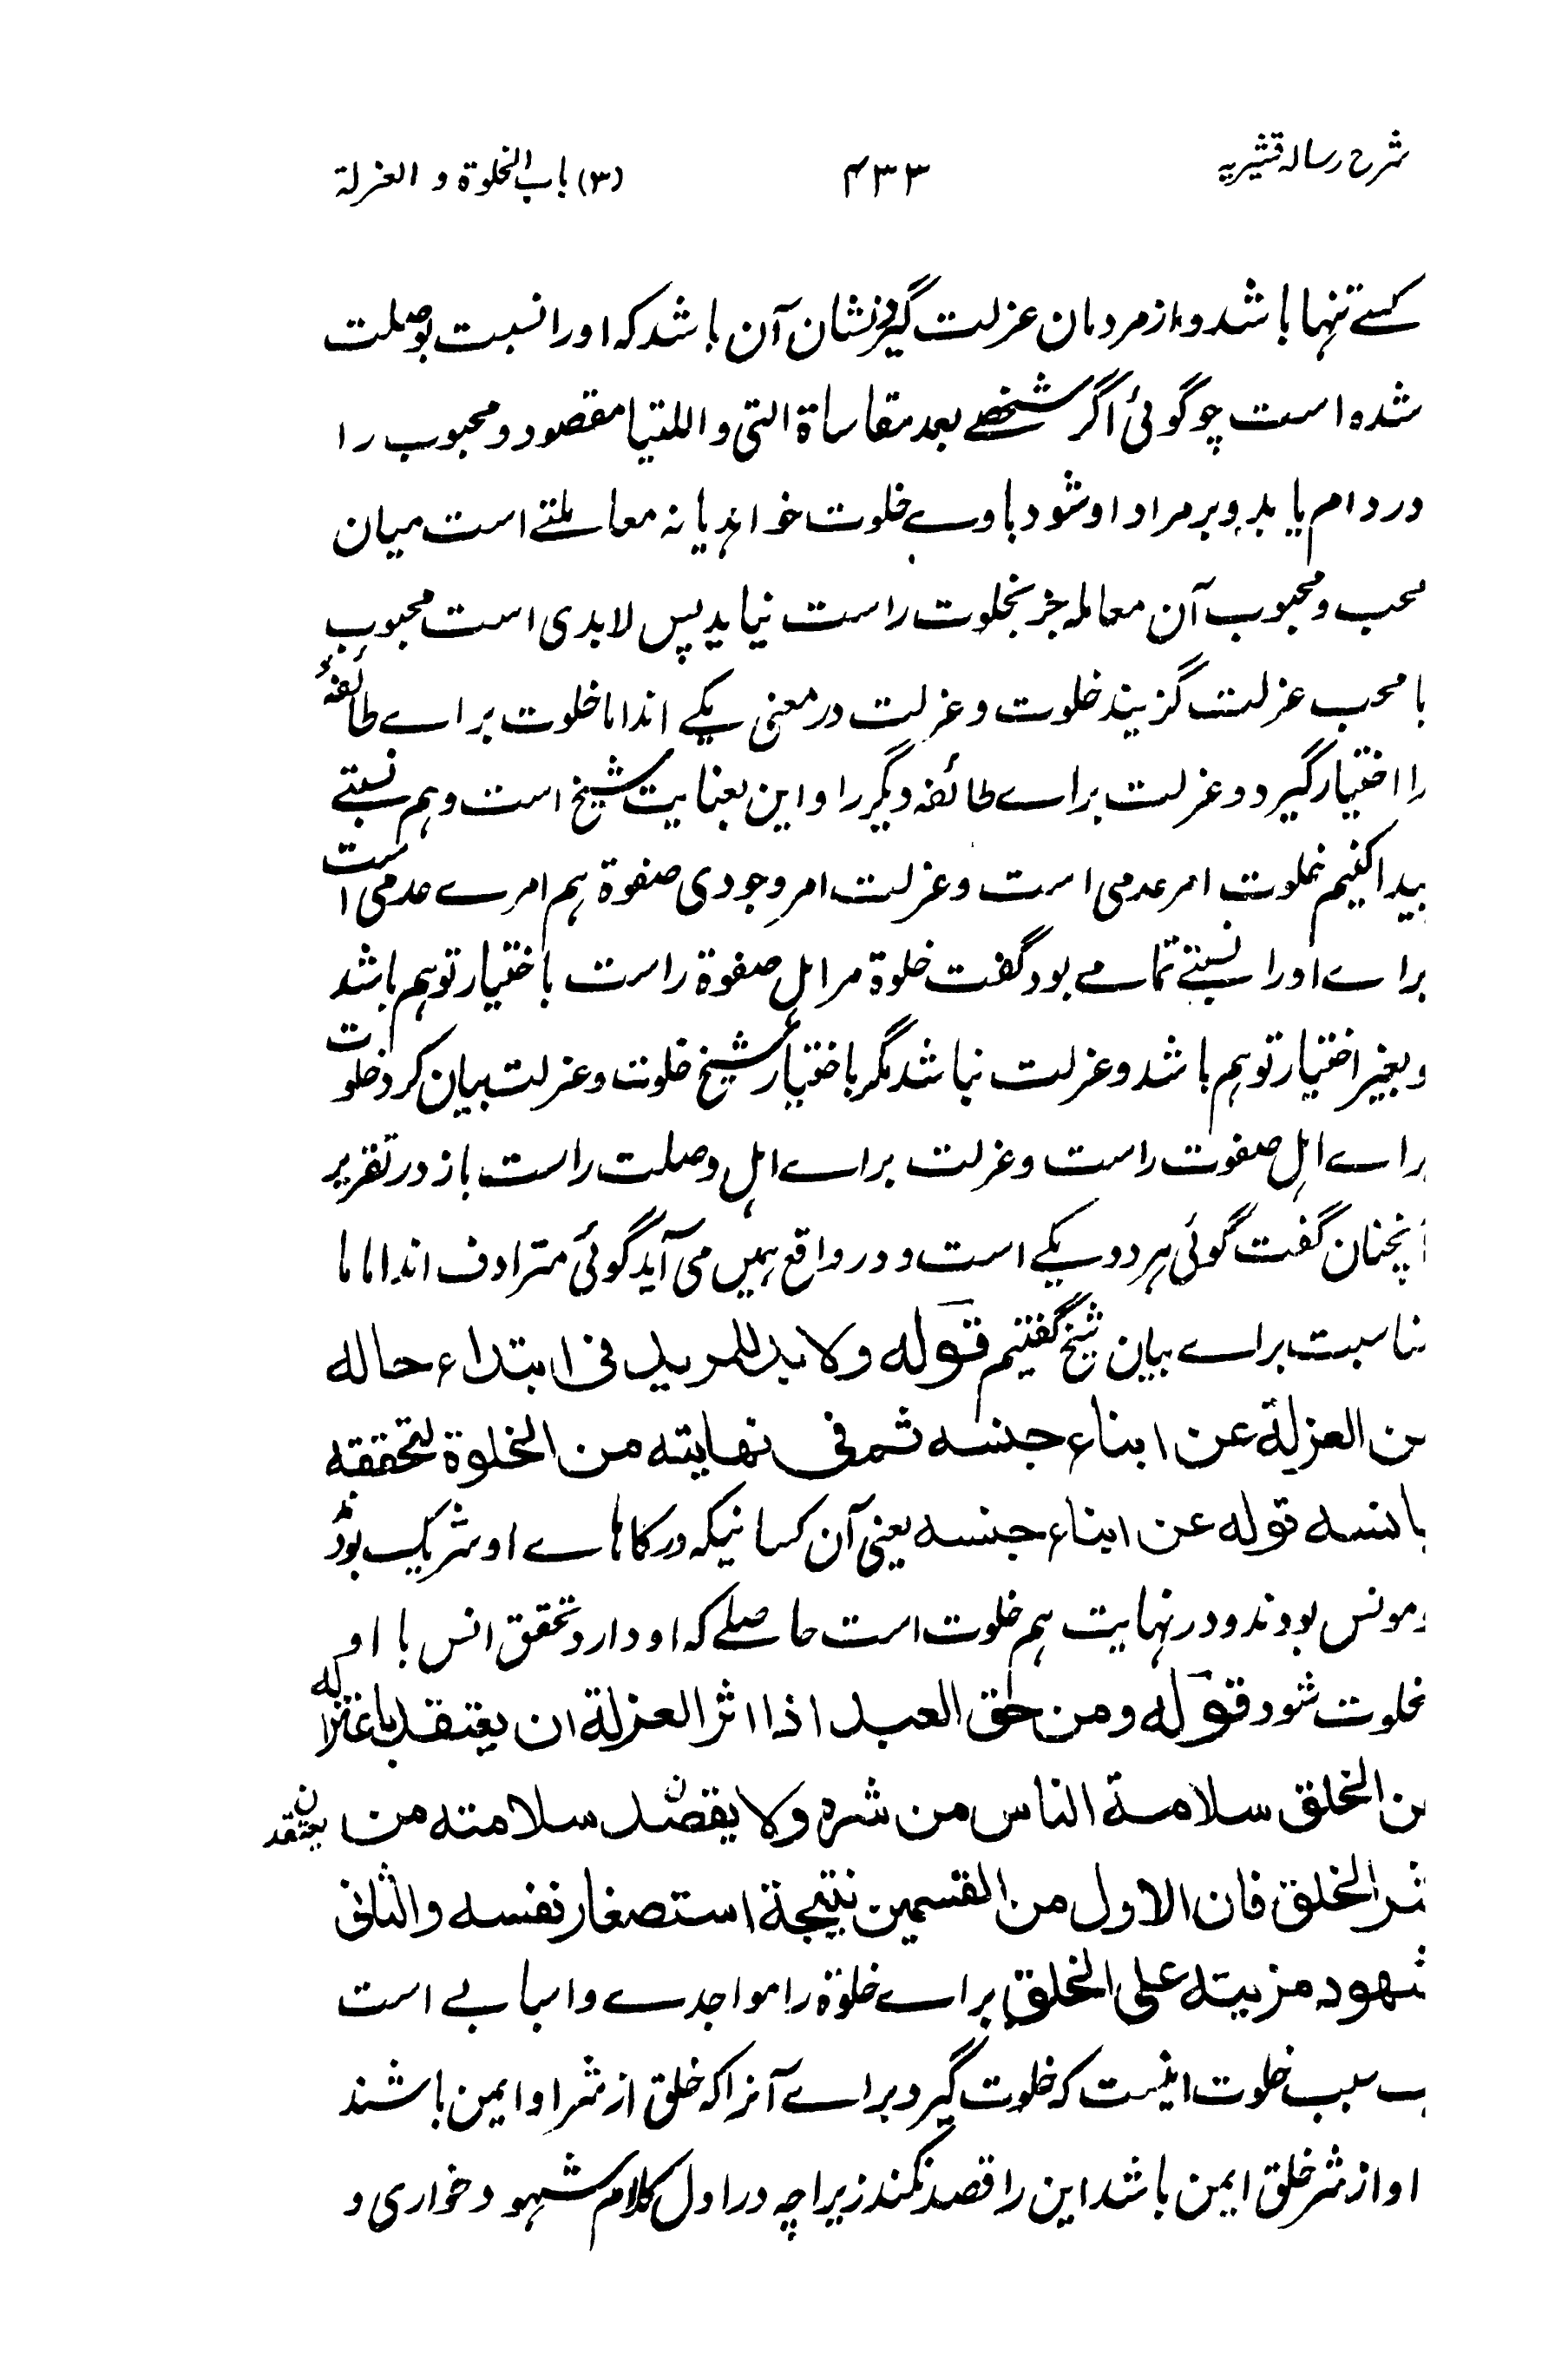 شرح رسالہ قشیریہ
۴۳۳
(۳) باب الخلوة و العزلة
کسے تنہا باشد و از مردمان عزلت گیرد نشان آن باشد کہ او را نسبت بوصلت
شدہ است چو گوئی اگر شخصے بعد مقاساة التی و اللتیا مقصود و محبوب را
در دام یابد و بر مراد او شود با وے خلوت خواہد یا نہ معاملتے است میان
محب و محبوب آن معاملہ جز بخلوت راست نیاید پس لابدی است محبوب
با محب عزلت گزیند خلوت و عزلت در معنی یکے اند اما خلوت براے طائفۂ
را اختیار گیرد و عزلت براے طائفہ دیگر را و این بعنایت شیخ است و ہم نسبتے
پیدا کنیم خلوت امر عدمی است و عزلت امر وجودی صفوة ہم امرے عدمی است
براے او را نسبتے تمامے بود گفت خلوة مر اہل صفوة راست باختیار تو ہم باشد
و بغیر اختیار تو ہم باشد و عزلت نباشد مگر باختیار شیخ خلوت و عزلت بیان کرد خلوت
براے اہل صفوت راست و عزلت براے اہل وصلت راست باز در تقریر
آنچنان گفت گوئی ہر دو یکے است و در واقع ہمیں می آید گوئی مترادف اند اما ما
مناسبت براے بیان شیخ گفتیم قوله ولا بد للمريد فى ابتداء حاله
من العزلة عن ابناء جنسه ثم فى نهايته من الخلوة لتحققه
بانسه قوله عن ابناء جنسه یعنی آن کسانیکہ در کارہاے او شریک بود
و مونس بودند و در نہایت ہم خلوت است حاصلے کہ او دارد تحقق انس با او
بخلوت شود قوله ومن حق العبد اذا اثر العزلة ان يعتقد باعتزاله
من الخلق سلامة الناس من شره ولا يقصد سلامته من
شر الخلق فان الاول من القسمين نتيجة استصغار نفسه والثانى
شهود مزيته على الخلق براے خلوة را مواجدے و اسبابے است
سبب خلوت اینست کہ خلوت گیرد براے آنرا کہ خلق از شر او ایمن باشند
او از شر خلق ایمن باشد این را قصد نکند زیرا چہ در اول کلام شہود خواری و